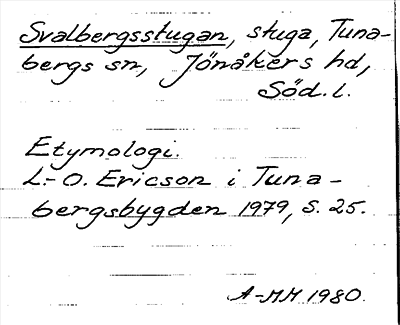 Svalbergsstugan, stuga, Tuna-
bergs sn, Jönåkers hd,
Söd. l.
Etymologi.
L.-O. Ericson i Tuna-
bergsbygden 1979, s. 25.
A-MH 1980.